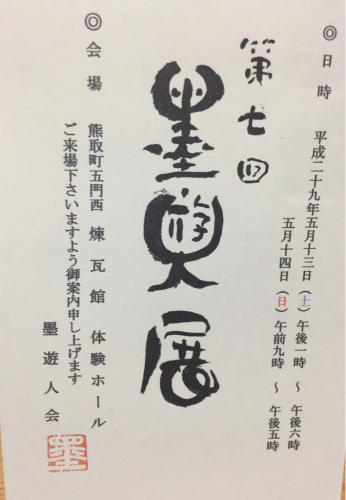 ◎日時　平成二十九年五月十三日（土）午後一時　～　午後六時
五月十四日（日）午前九時　～　午後五時
第七回
墨　展
◎会場　熊取町五門西　煉瓦館　体験ホール
ご来場下さいますよう御案内申し上げます
墨遊人会